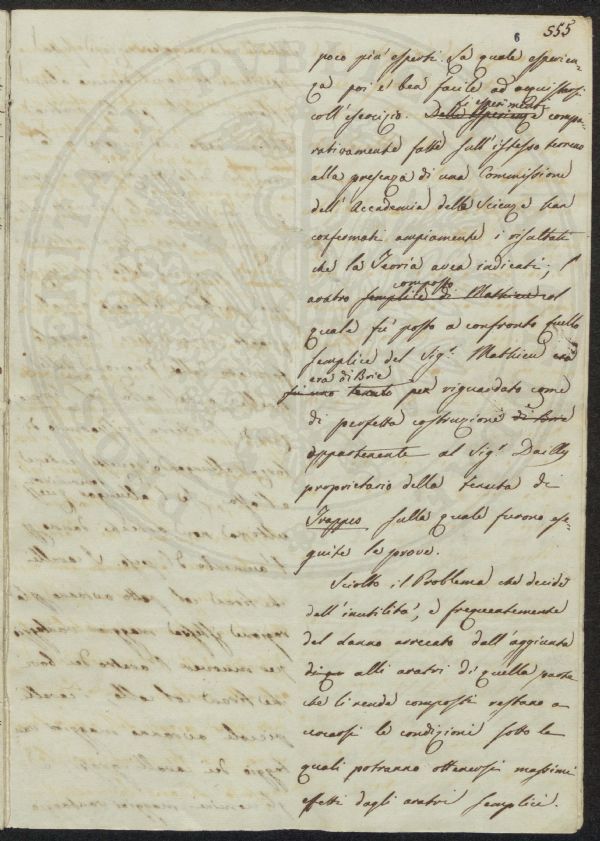 555
6
poco più esperti. La quale esperien-
za poi è ben facile ad acquistarsi
coll'esercizio.
Gli esperimenti
Delle esperienze compa-
rativamente fatte sull'istesso terreno
alla presenza di una Commissione
dell'Accademia delle Scienze han
confermati ampiamente i risultati
che la Teoria avea indicati; l'
composto
aratro semplice di Mathieu col
quale fu posto a confronto quello
semplice del Sigr. Mathieu era
era di Brie
tenuto per riguardato come
di perfetta costruzione di Brie
appartenente al Sigr. Dailly
proprietario della tenuta di
Trappes sulla quale furono ese-
guite le prove.
Sciolto il Problema che decide
dell'inutilità, e frequentemente
del danno arrecato dall'aggiunta
alli aratri di quella parte
che li rende composti restano a
cercarsi le condizioni sotto le
quali potranno ottenersi massimi
effetti dagli aratri semplici.